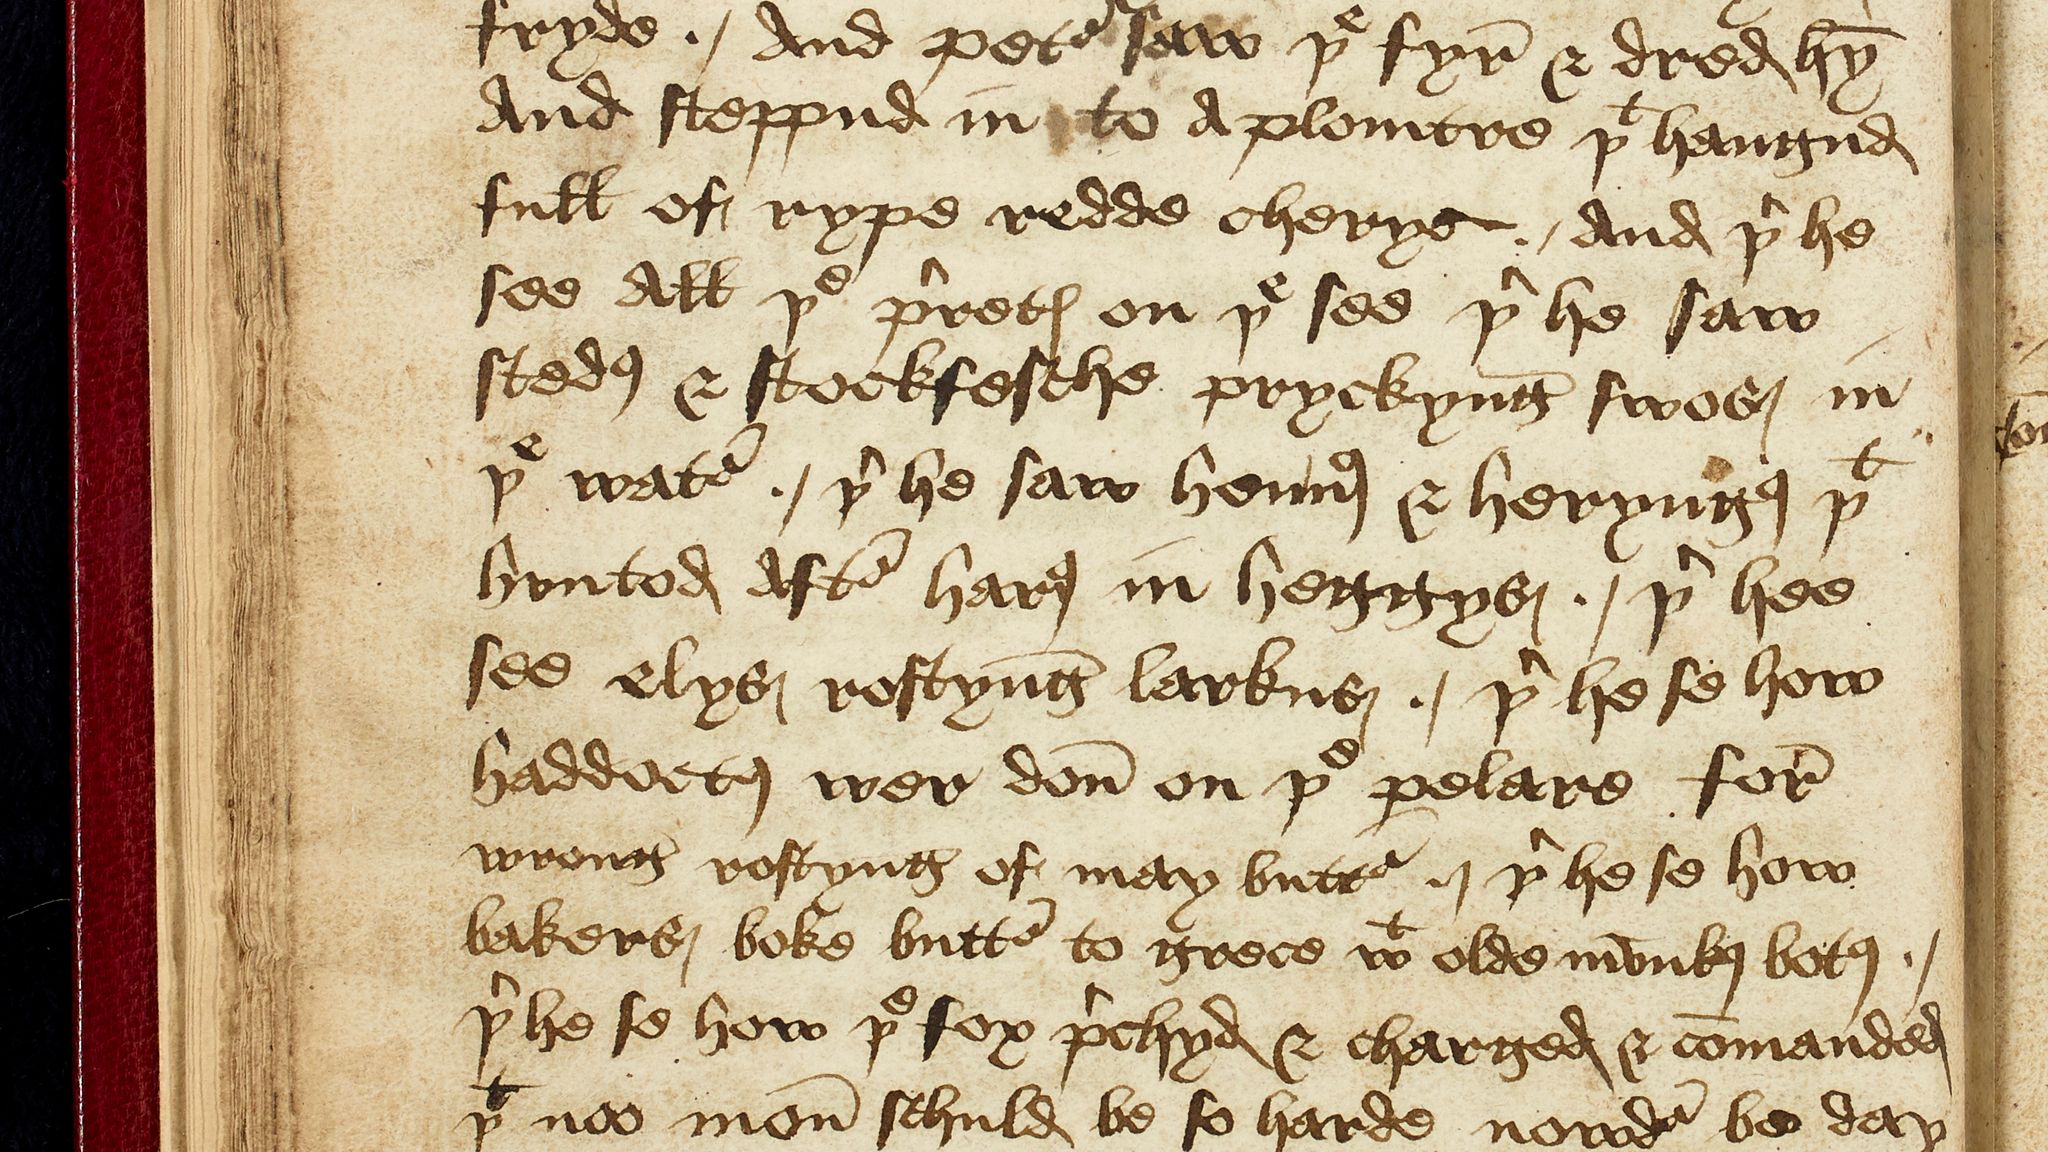 fryde ./ And petᵉ saw þᵉ fyr̄ & dred hȳ
And steppud in to A plomtre þᵗ hangud
full of rype redde cherys ./ And þʳ he
see All þᵉ þʳretꝭ on þᵉ see þʳ he saw
stedꝰ & stockfesche pryckyng̅ swos in
þᵉ watᵉ ./ þʳ he saw hennꝰ & heryngꝰ þᵗ
huntod Aftᵉ harꝰ in heggys ./ þʳ hee
see elys rostyng̅ larkus ./ þʳ he se how
haddoctꝰ wer don̄ on þᵉ pelare for̄
wrong rostyng of may buttᵉ ./ þʳ he se how
bakers boke buttᵉ to grece wᵗ olde mūnkꝰ botꝰ ./
þʳ he se how þᵉ fox pʳchyd & charged & cōmanded
þᵗ noo mon̄ schuld be so harde nowdᵉ be day